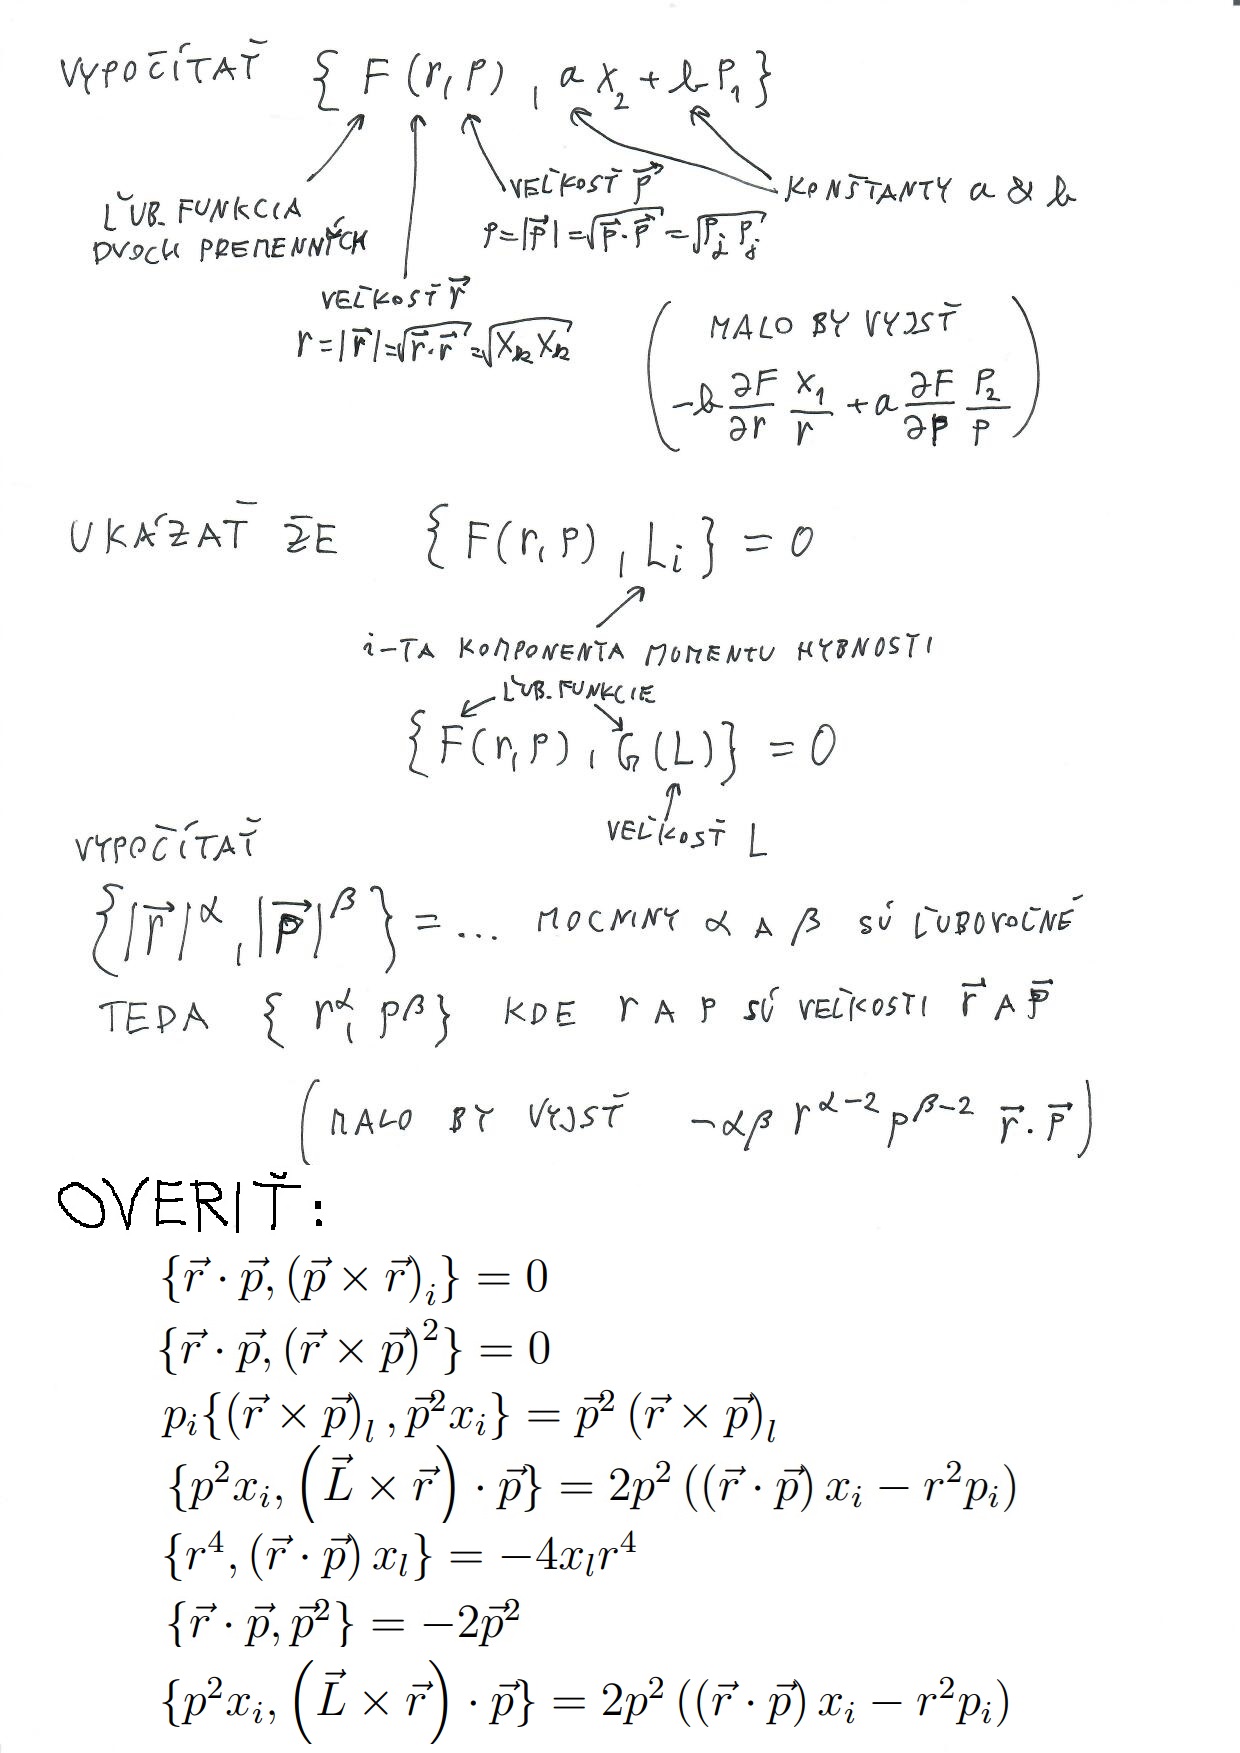 VYPOČÍTAŤ { F (r, p) , a x₂ + b p₁ }
ĽUB. FUNKCIA
DVOCH PREMENNÝCH
VEĽKOSŤ p⃗
p = |p⃗| = √(p⃗·p⃗) = √(pⱼ pⱼ)
KONŠTANTY a & b
VEĽKOSŤ r⃗
r = |r⃗| = √(r⃗·r⃗) = √(xₖ xₖ)
( MALO BY VYJSŤ
-b ∂F/∂r x₁/r + a ∂F/∂p p₂/p )
UKÁZAŤ ŽE { F(r, p) , Lᵢ } = 0
i-TA KOMPONENTA MOMENTU HYBNOSTI
ĽUB. FUNKCIE
{ F(r, p) , G(L) } = 0
VEĽKOSŤ L
VYPOČÍTAŤ
{ |r⃗|^α , |p⃗|^β } = ... MOCNINY α A β SÚ ĽUBOVOĽNÉ
TEDA { r^α, p^β } KDE r A p SÚ VEĽKOSTI r⃗ A p⃗
( MALO BY VYJSŤ -αβ r^(α-2) p^(β-2) r⃗·p⃗ )
OVERIŤ:
{r⃗ · p⃗, (p⃗ × r⃗)ᵢ} = 0
{r⃗ · p⃗, (r⃗ × p⃗)²} = 0
pᵢ{(r⃗ × p⃗)ₗ , p⃗²xᵢ} = p⃗² (r⃗ × p⃗)ₗ
{p²xᵢ, (L⃗ × r⃗) · p⃗} = 2p² ((r⃗ · p⃗) xᵢ − r²pᵢ)
{r⁴, (r⃗ · p⃗) xₗ} = −4xₗr⁴
{r⃗ · p⃗, p⃗²} = −2p⃗²
{p²xᵢ, (L⃗ × r⃗) · p⃗} = 2p² ((r⃗ · p⃗) xᵢ − r²pᵢ)